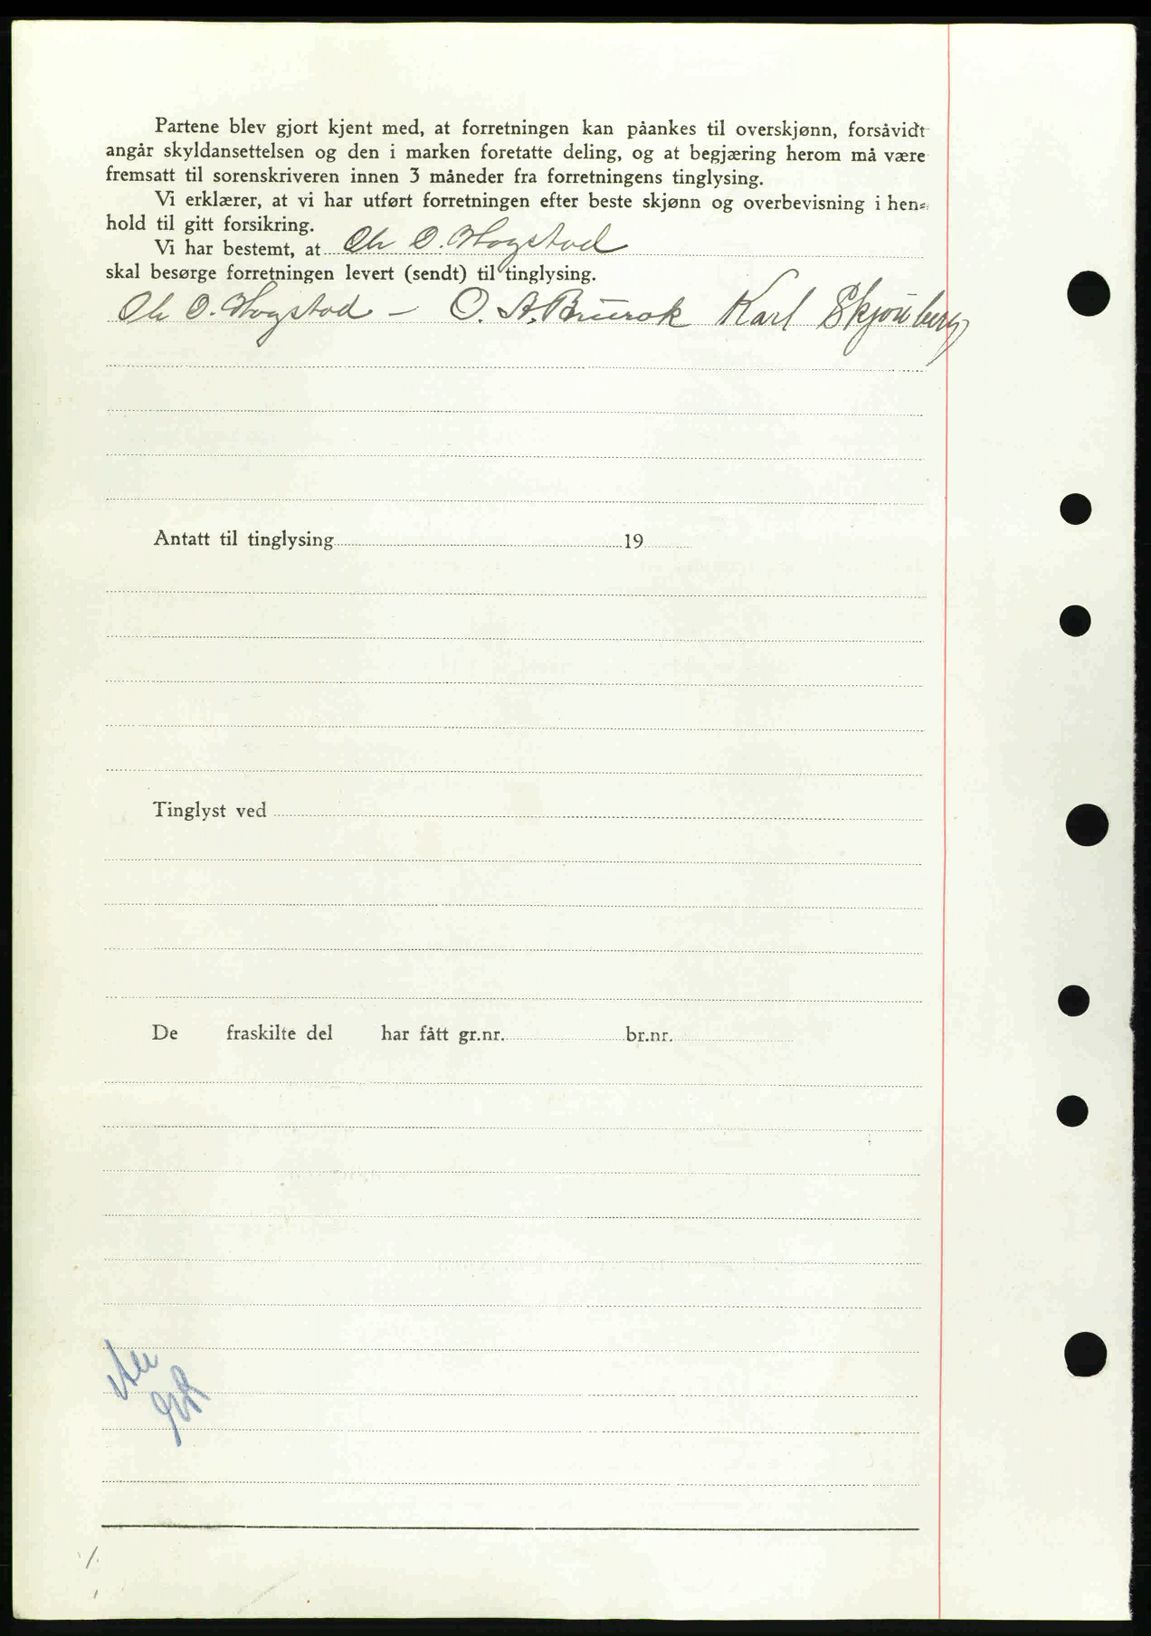 Partene blev gjort kjent med, at forretningen kan påankes til overskjønn, forsåvidt
angår skyldansettelsen og den i marken foretatte deling, og at begjæring herom må være
fremsatt til sorenskriveren innen 3 måneder fra forretningens tinglysing.
Vi erklærer, at vi har utført forretningen efter beste skjønn og overbevisning i hen-
hold til gitt forsikring.
Vi har bestemt, at Chr O. Hogstad
skal besørge forretningen levert (sendt) til tinglysing.
Chr O. Hogstad – O. A. Karl Skjønberg
Antatt til tinglysing 19
Tinglyst ved
De fraskilte del har fått gr.nr. br.nr.